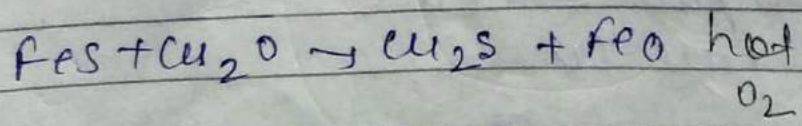 FeS + Cu₂O → Cu₂S + FeO hot
O₂